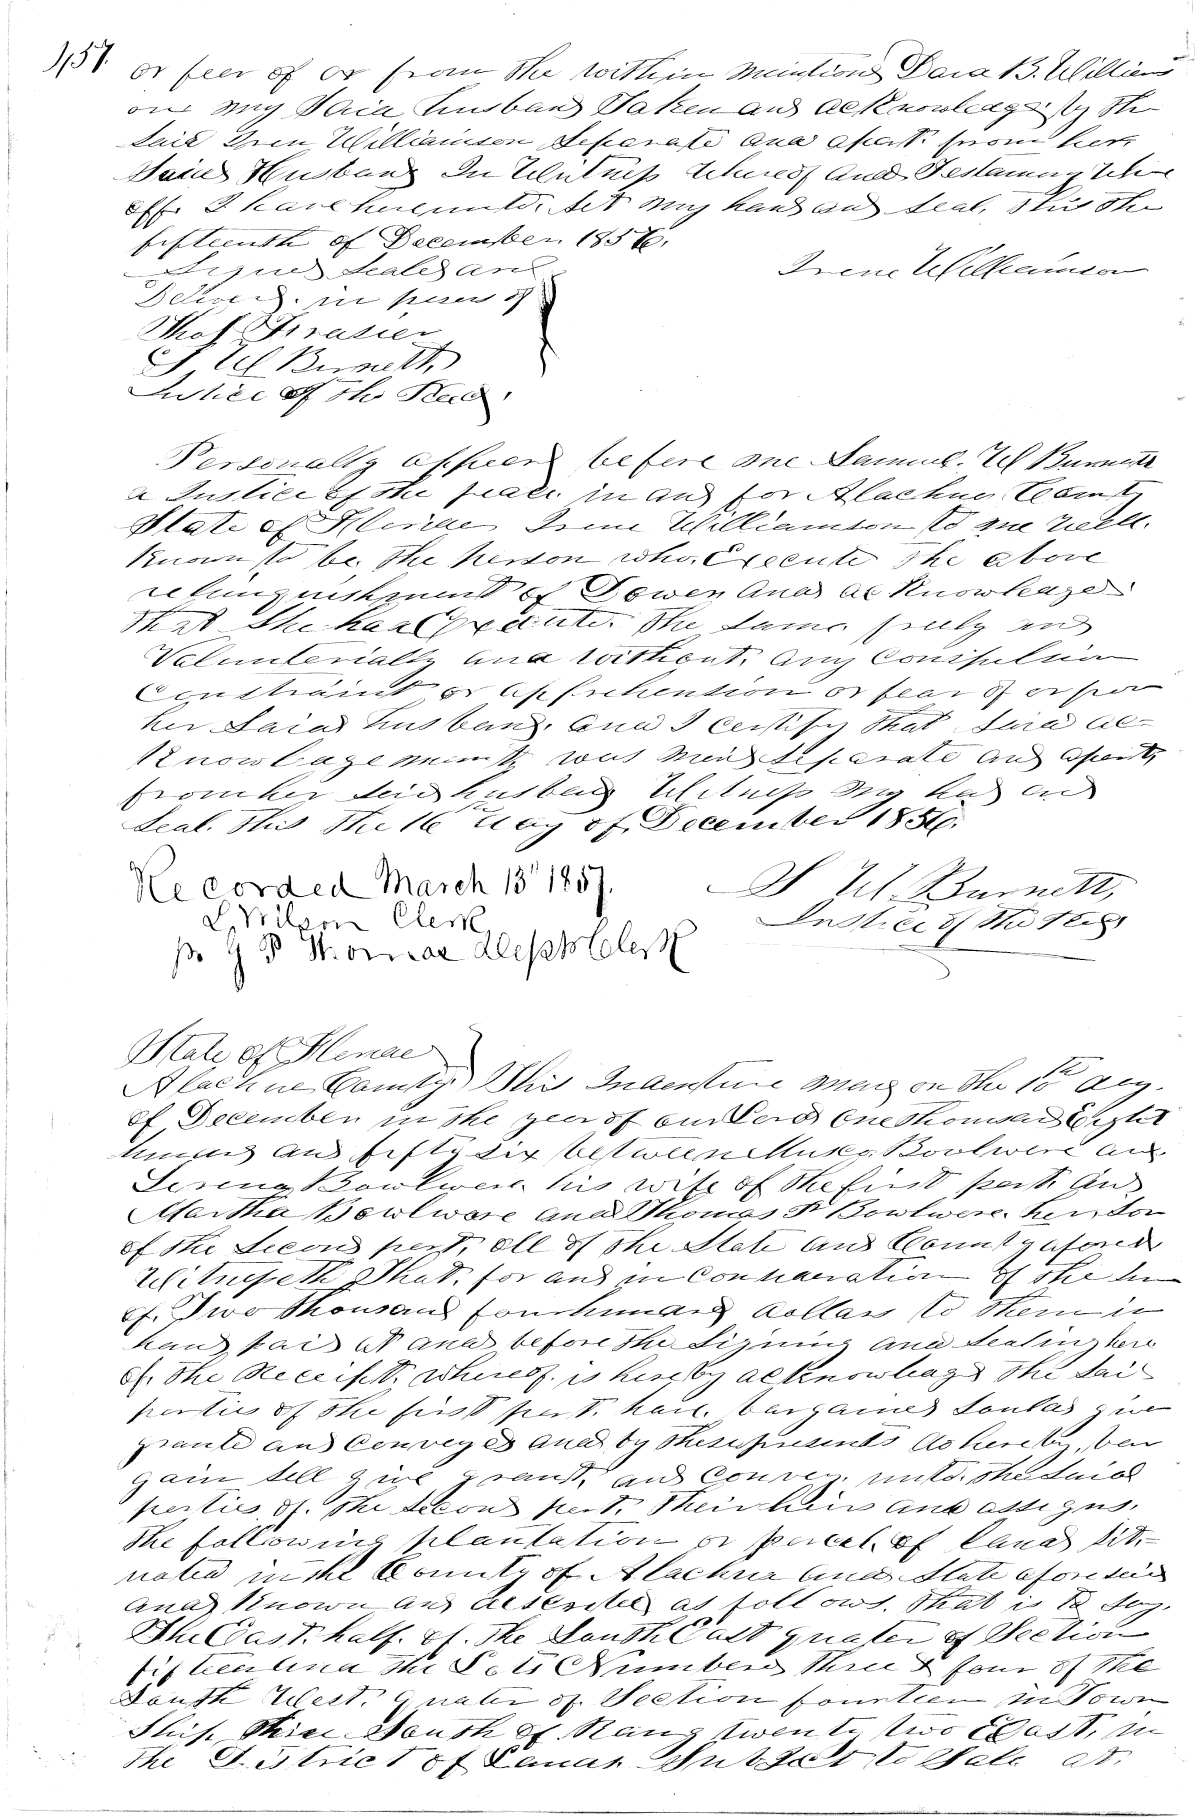 457.
or feer of or from the within mentiond Said B. William
on my Said husband Taken and acknowledge by the
Said Iren Williamson Seperate and apart from her
Said Husband In Witness Whereof and Testamony Whe
off I have hereunto Set my hand and Seal, This the
fifteenth of December 1856.
Signed Sealed and
Deliverd. in presen of
Irene Williamson
Thos Frasier
S, W Burnett,
Justice of the Peac,
Personally appeerd before me Samuel. W Burnett
a Justice of the peace in and for Alachua County
State of Floridae Irene Williamson to me well.
Known to be the person who Execute the above
relinquishment of Dower and acknowleaged
that She had Execute. the Same freely and
Volunterially and without any Compulsion
Constraint or apprehention or fear of or from
her Said husband. and I certify that Said ac-
Knowleagement was Mend Seperate and apart
from her Said husband Witness my had and
Seal. This the 16th day of December 1856.
Recorded March 13th 1857.
L. Wilson Clerk
pr G P Thomas Depty Clerk
S W. Burnett,
Justice of the Peac
State of Floridae
Alachua County) This Indenture Mad on the 10th day.
of December in the year of our Lord One Thousand Eight
hundred and fifty Six between Boulwere and
Serena Bowlwere his wife of the first part. and
Martha Bowlware and Thomas Bowlwere her Son
of the Second part, all of the State and County aforesd
Witnesseth That. for and in Consideration of the Sum
of. Two Thousand four hundard dollars to them in
hand paid at and before the Signing and Sealing here
of. the Receipt. whereof. is hereby acknowleaged the Said
parties of the first part. have. bargained Sould give
grante and Conveyed and by these presents do hereby, bar
gain Sell give grant, and Convey. unto. the Said
parties of. the Second part. Their heirs and assigns.
the following plantation or parcel. of Land Sit-
uated in the County of Alachua and State aforesaid
and Known and described as follows. That is to Say.
The East. half. of. the South East quater of Section
fifteen and the Lots Numbered three & four of the
South West. quater of. Section fourteen in Town
Ship. South of Rang twenty two East, in
the District of Lands Subject to Sale at.